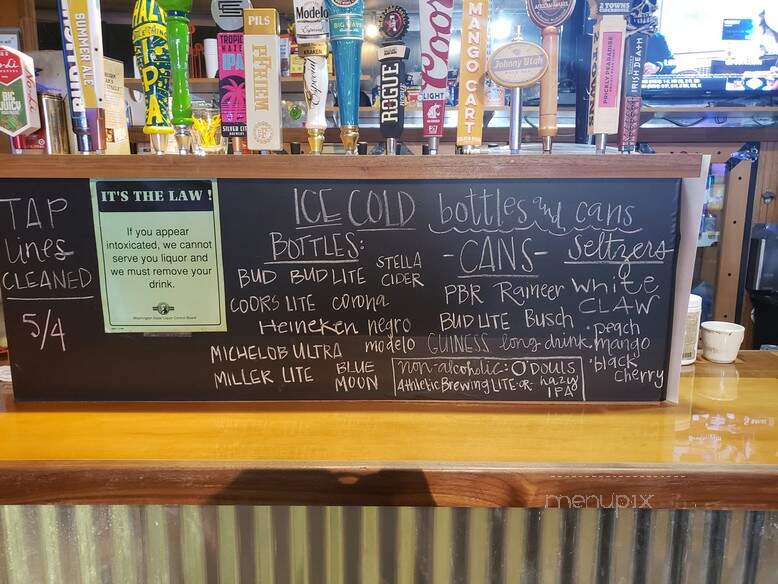 SUMMER ALE
HALE'S
IPA
TROPIC HAZE
IPA
SILVER CITY
PILS
Modelo
Especial
KRAKEN
BIG WAVE
ROGUE
Coors
LIGHT
MANGO CART
Johnny Utah
2 TOWNS
PRICKLY PEARADISE
IRISH DEATH
BIG JUICY
TAP
Lines
CLEANED
5/4
IT'S THE LAW !
If you appear
intoxicated, we cannot
serve you liquor and
we must remove your
drink.
Washington State Liquor Control Board
ICE COLD bottles and cans
BOTTLES:
BUD BUD LITE STELLA CIDER
COORS LITE corona
Heineken negro modelo
MICHELOB ULTRA
MILLER LITE BLUE MOON
-CANS-
PBR Raineer
BUD LITE Busch
GUINESS long drink
non-alcoholic: O'DOULS
Athletic Brewing LITE OR hazy IPA
Seltzers
White
CLAW
• peach
mango
• black
cherry
menupix